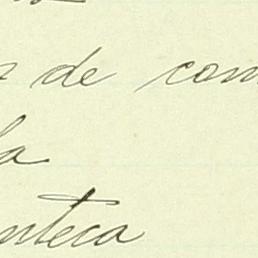 de com
la
nteca